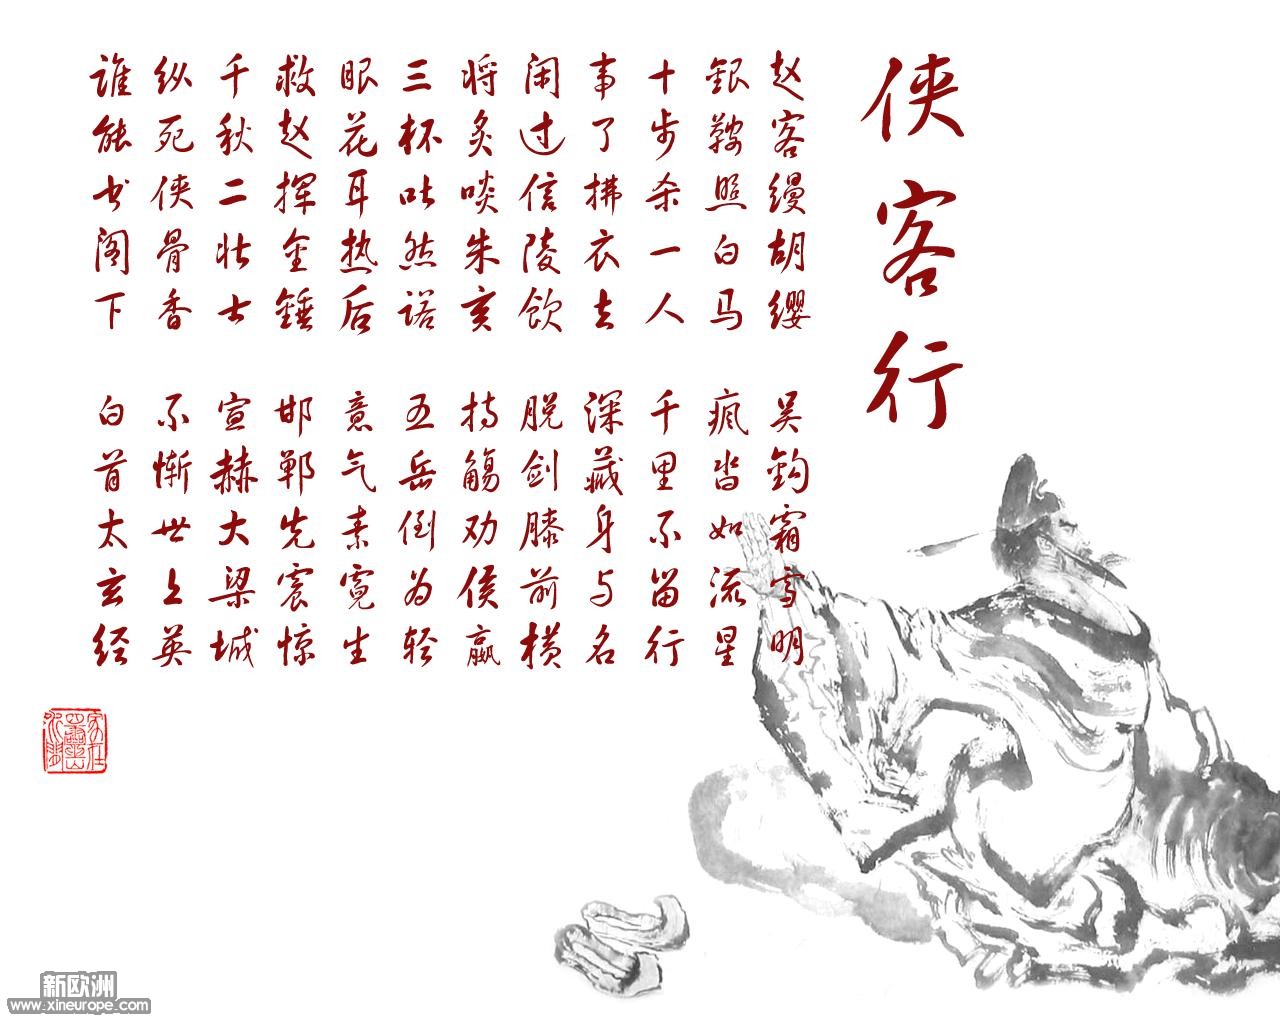 侠客行
赵客缦胡缨 吴钩霜雪明
银鞍照白马 疯沓如流星
十步杀一人 千里不留行
事了拂衣去 深藏身与名
闲过信陵饮 脱剑膝前横
将炙啖朱亥 持觞劝侯嬴
三杯吐然诺 五岳倒为轻
眼花耳热后 意气素霓生
救赵挥金锤 邯郸先震惊
千秋二壮士 宣赫大梁城
纵死侠骨香 不惭世上英
谁能书阁下 白首太玄经
新欧洲
www.xineurope.com